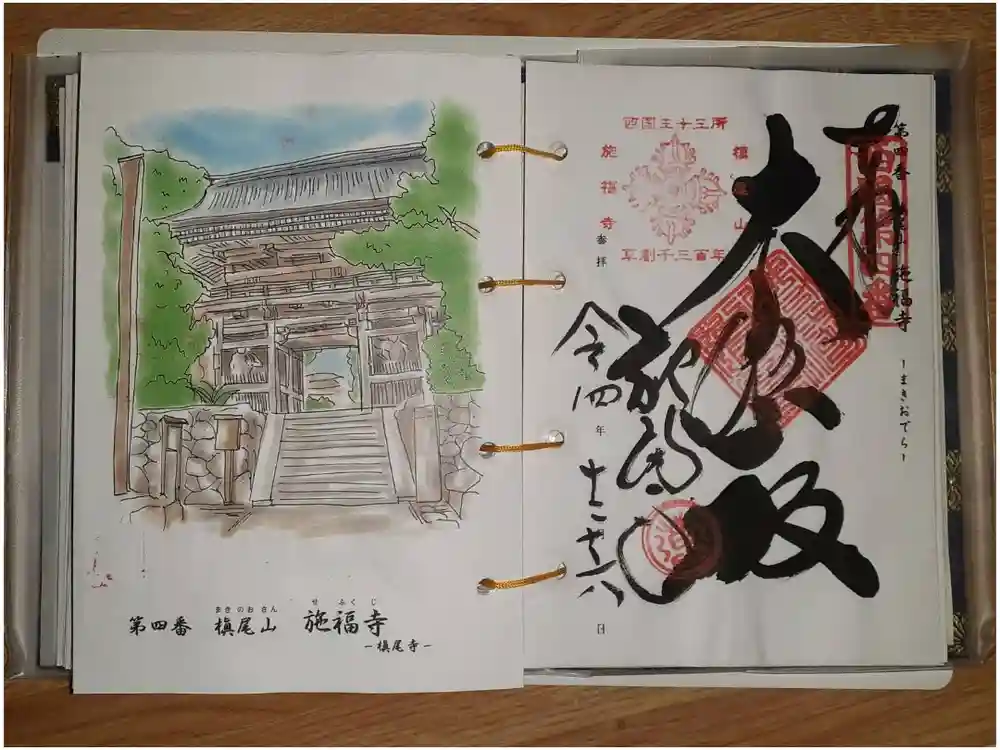 まきのおさん　せふくじ
第四番　槇尾山　施福寺
－槇尾寺－
第四番　槇尾山　施福寺　－まきおでら－
西国第四番
施福寺
西国三十三所
槇尾山
施福寺
草創千三百年
参拝
令四年十二月十八日